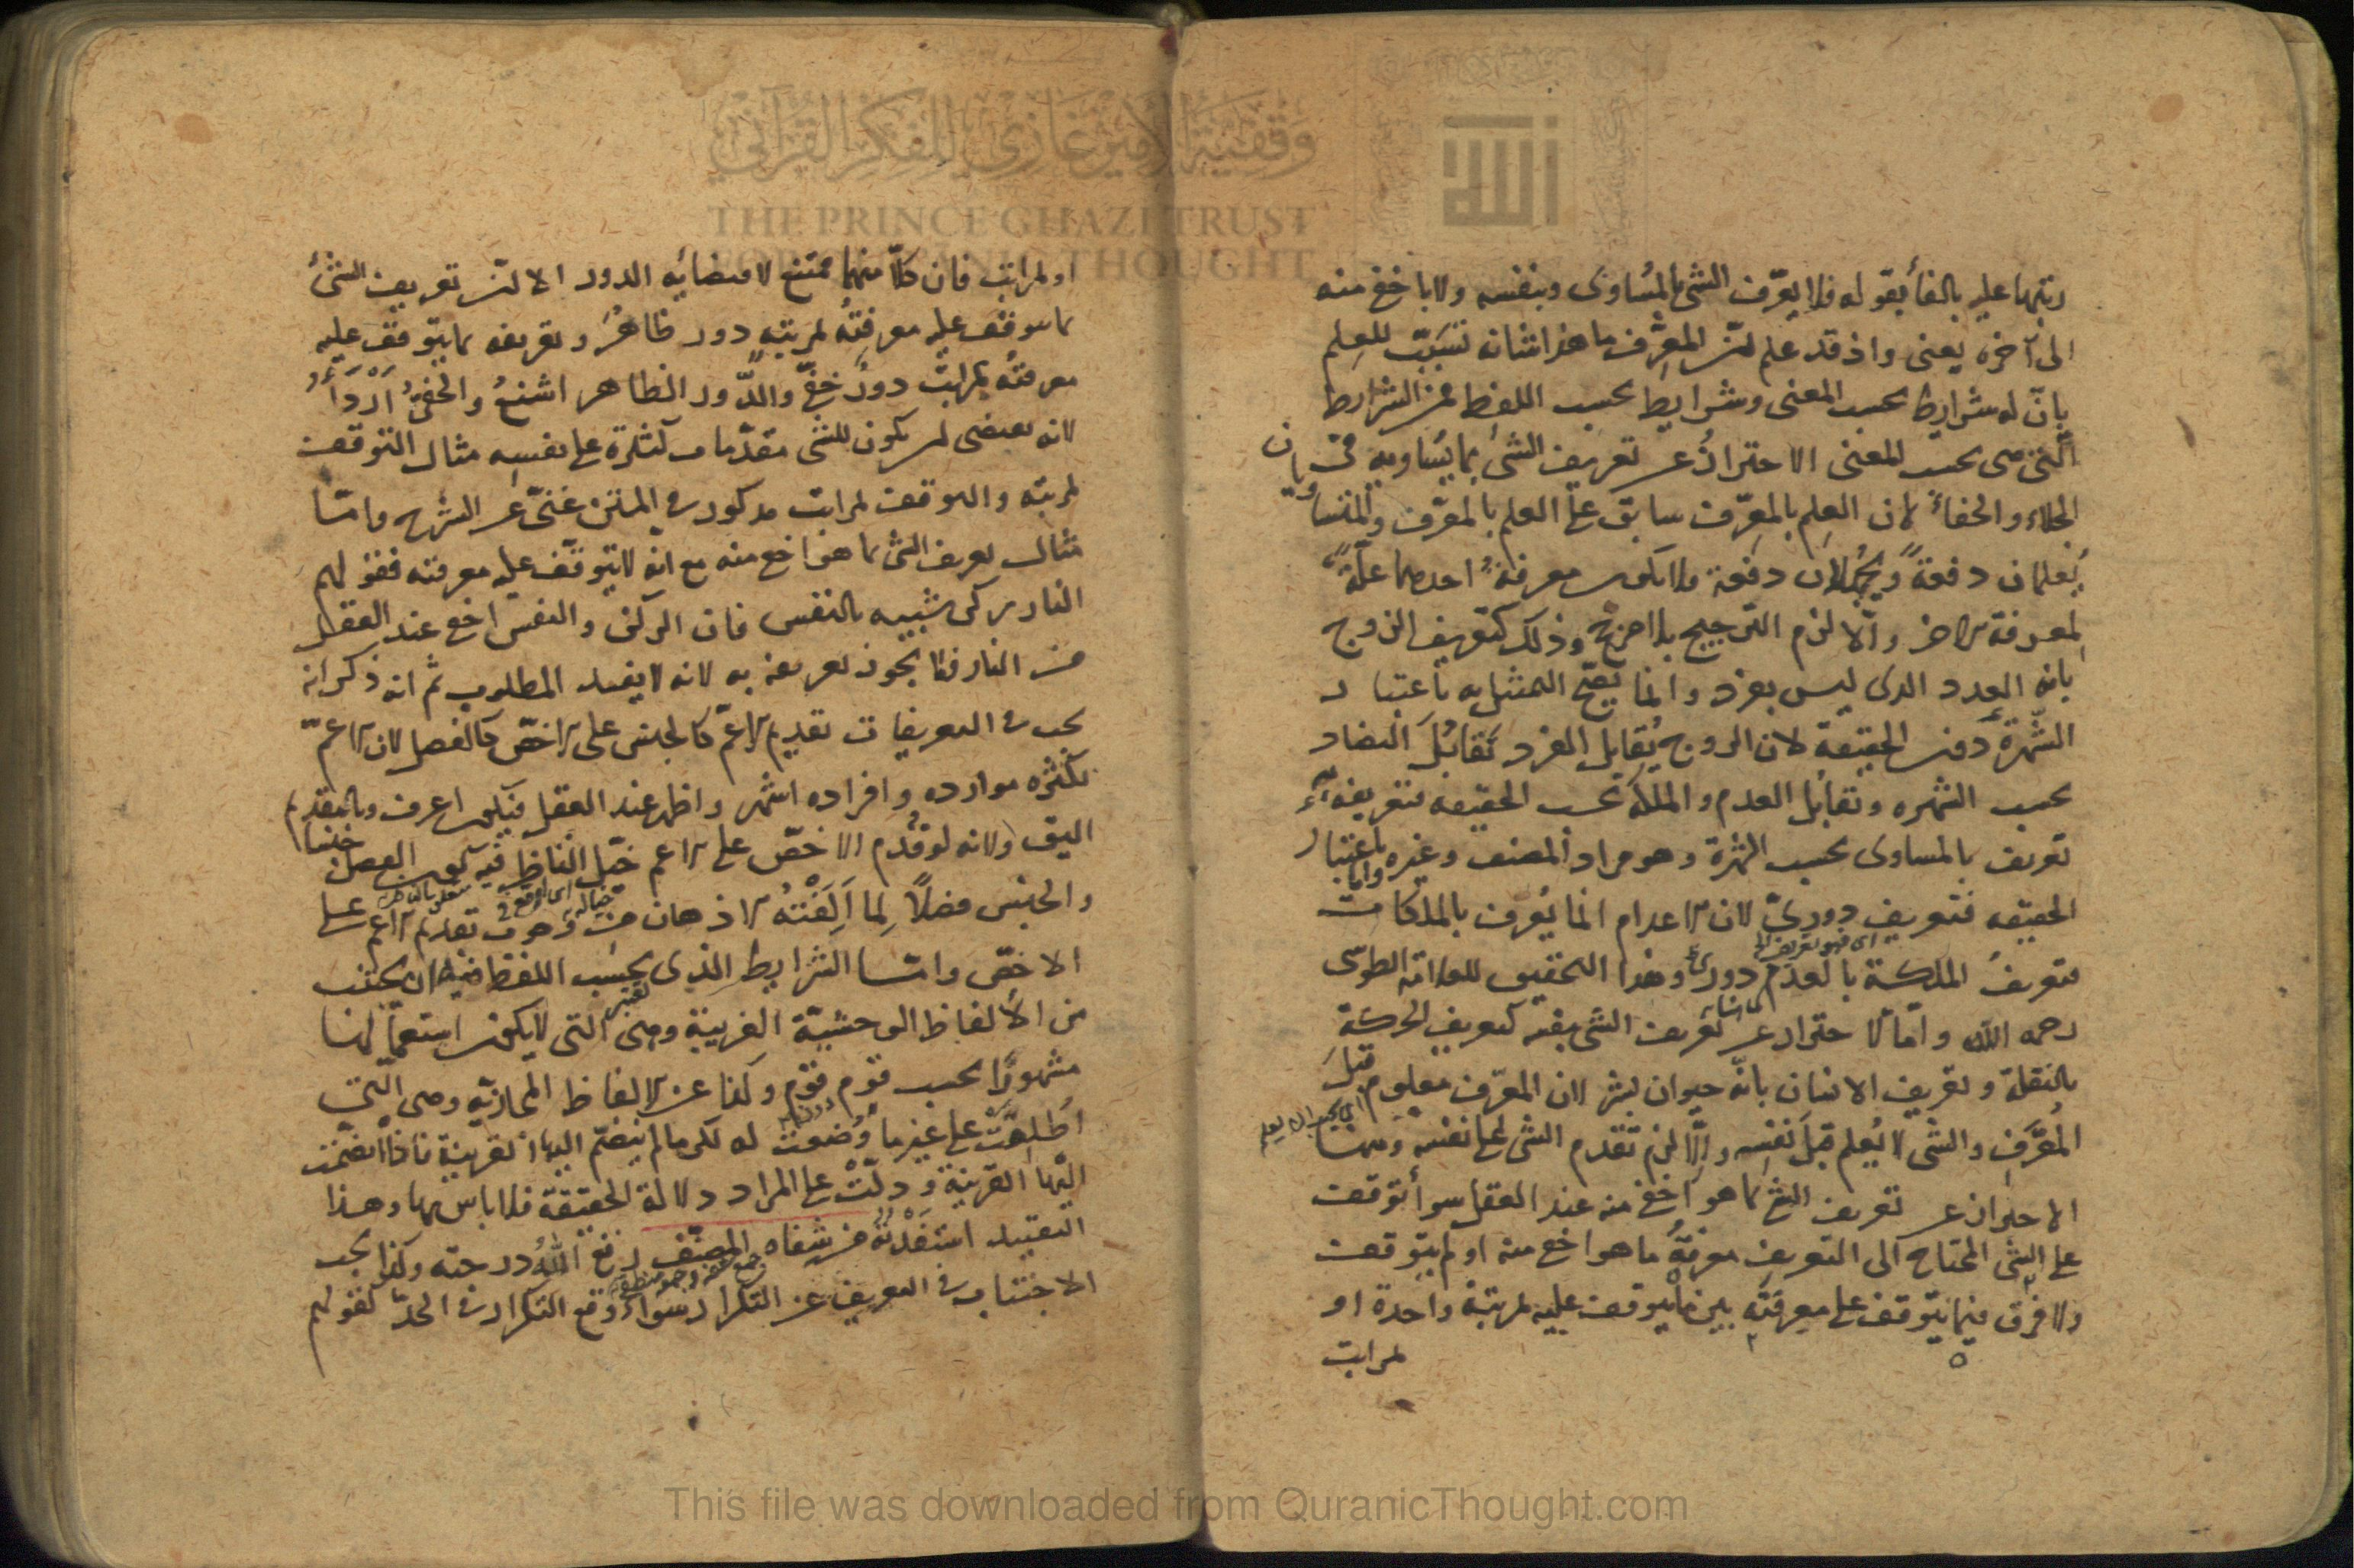 وقفية الأمير غازي للفكر القرآني
THE PRINCE GHAZI TRUST
FOR QURANIC THOUGHT
الله
عليه بالفأ بقوله فلا يعرّف الشئ بالمُساوى وبنفسه ولا باخفى منه
الى آخره يعنى واذ قد علم المعرّف ما هو للعلم
بانّ له شرايط بحسب المعنى وشرايط بحسب اللفظ فمن الشرايط
الّتى هى بحسب المعنى الاحتراز عن تعريف الشئ بما يُساويه فى
الجلاء والخفاء لان العلم بالمعرّف سابق على العلم بالمعرّف والمتساويان
يُعلمان دفعةً ويُجهلان دفعة فلا يكون معرفة احدهما علّةً
لمعرفة الاخر والّا لزم الترجيح بلا مرجح وذلك كتعريف الزوج
بانه العدد الذى ليس بفرد وانما يصحّ التمثيل به باعتبار
الشّهرة دون الحقيقة لان الزوج يُقابل الفرد تقابُلَ التضاد
بحسب الشهره وتقابُل العدم والملكة بحسب الحقيقه فتعريفه
تعريف بالمساوى بحسب الشهرة وهو مراد المصنف وغيره وامّا باعتبار
الحقيقه فتعريف دورىّ لان الاعدام انما يُعرف بالملكات
اى فهو تعريف
فتعريفُ الملكة بالعدم دورى وهذا التحقيق للعلامة الطوسى
رحمه الله وامّا الاحتراز عن تعريف الشئ بنفسه كتعريف الحركة
بالنقلة وتعريف الانسان بانّه حيوان بشر لان المعرّف معلوم قبل
المُعرَّف والشئ لا يُعلم قبلَ نفسِه والّا لزم تقدم الشئ على نفسه ومنها
اى يجب ان يعلم
الاحتراز عن تعريف الشئ بما هو اخفى منه عند العقل سواء توقف
على الشئ المحتاج الى التعريف معرفةُ ما هو اخفى منه او لم يتوقف
ولا فرق فيما يتوقف على معرفته بين ما يتوقف عليه لمرتبة واحدة او
لمراتب
او لمراتب فان كلّا منهما ممتنع لاقتضائه الدور الا ان تعريف الشئ
بما يتوقف عليه معرفتُه لمرتبةٍ دور ظاهرٌ وتعريفه بما يتوقف عليه
معرفتُه بمراتب دورٌ خفىّ والدّور الظاهر اشنعُ والخفىُّ أَرْدَأُ
لانه يقتضى ان يكون للشئ تقدّمات كثيرة على نفسه مثال التوقف
لمرتبة والتوقف لمراتب مذكور فى المتن غنىّ عن الشرح وامّا
مثال تعريف الشئ بما هو اخفى منه مع انّه لا يتوقّف عليه معرفته فقولهم
النار ركن شبيه بالنفس فان الركن والنفس اخفى عند العقل
من النار فلا يجوز تعريفه به لانه لا يفيد المطلوب ثم انه ذكر انه
يجب فى التعريفات تقديم الاعمّ كالجنس على الاخصّ كالفصل لان الاعمّ
لكثرة موارده وافراده اشهر واظهر عند العقل فيكون اعرف وبالتقديم
اليق ولانه لو قُدّم الاخصّ على الاعم خيّل الناظر فيه كون الفصل جنسا
والجنس فصلًا لِما اَلِفَتْهُ الاذهان من وجوب تقديم الاعم على
الاخصّ وامّا الشرايط الذى بحسب اللفظ فهى ان يجتنب
من الألفاظ الوحشيّة الغريبة وهى التى لا يكون استعمالها
مشهورًا بحسب قوم قوم وكذا عن الالفاظ المجازيّه وهى التى
اُطلِقَتْ على غير ما وُضعت له لكن ما لم ينضمّ اليها القرينة فاذا انضمّت
اليها القرينة ودلّتْ على المراد دلالة الحقيقة فلا باس بها وهذا
التقييد استفَدْتُه من شفاه المصنّف رفع اللّهُ درجته وكذا يجب
الاجتناب فى التعريف عن التكرار سواءٌ وقع التكرار فى الحدّ كقولهم
This file was downloaded from QuranicThought.com